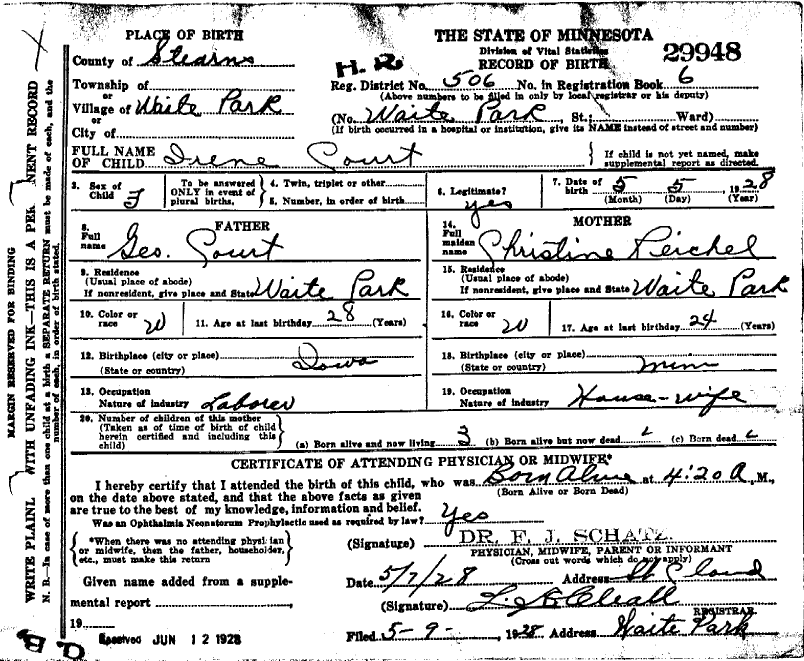 PLACE OF BIRTH
County of Stearns
Township of
or
Village of Waite Park
or
City of
THE STATE OF MINNESOTA
Division of Vital Statistics
RECORD OF BIRTH
29948
H. R.
Reg. District No. 506 No. in Registration Book 6
(Above numbers to be filled in only by local registrar or his deputy)
(No. Waite Park, St.; Ward)
(If birth occurred in a hospital or institution, give its NAME instead of street and number)
FULL NAME OF CHILD Irene Court
{ If child is not yet named, make supplemental report as directed.
3. Sex of Child F
To be answered ONLY in event of plural births.
4. Twin, triplet or other
5. Number, in order of birth
6. Legitimate? yes
7. Date of birth 5 5 1928
(Month) (Day) (Year)
FATHER
8. Full name Geo. Court
9. Residence
(Usual place of abode)
If nonresident, give place and State Waite Park
10. Color or race W
11. Age at last birthday 28 (Years)
12. Birthplace (city or place)
(State or country) Iowa
13. Occupation
Nature of industry Laborer
MOTHER
14. Full maiden name Christine Reichel
15. Residence
(Usual place of abode)
If nonresident, give place and State Waite Park
16. Color or race W
17. Age at last birthday 24 (Years)
18. Birthplace (city or place)
(State or country) Minn
19. Occupation
Nature of industry House-wife
20. Number of children of this mother
(Taken as of time of birth of child
herein certified and including this
child)
(a) Born alive and now living 3 (b) Born alive but now dead (c) Born dead
CERTIFICATE OF ATTENDING PHYSICIAN OR MIDWIFE*
I hereby certify that I attended the birth of this child, who was Born Alive at 4:20 A.M.,
(Born Alive or Born Dead)
on the date above stated, and that the above facts as given
are true to the best of my knowledge, information and belief.
Was an Ophthalmia Neonatorum Prophylactic used as required by law? Yes
{ *When there was no attending physician
or midwife, then the father, householder,
etc., must make this return }
(Signature) DR. F. J. SCHATZ.
PHYSICIAN, MIDWIFE, PARENT OR INFORMANT
(Cross out words which do not apply)
Given name added from a supple-
mental report
19
Date 5/7/28 Address St Cloud
(Signature)
REGISTRAR
Filed 5-9- 1928 Address Waite Park
Received JUN 12 1928
MARGIN RESERVED FOR BINDING
WRITE PLAINL WITH UNFADING INK—THIS IS A PER NENT RECORD
N. B.—In case of more than one child at a birth a SEPARATE RETURN must be made of each, and the
number of each, in order of birth stated.